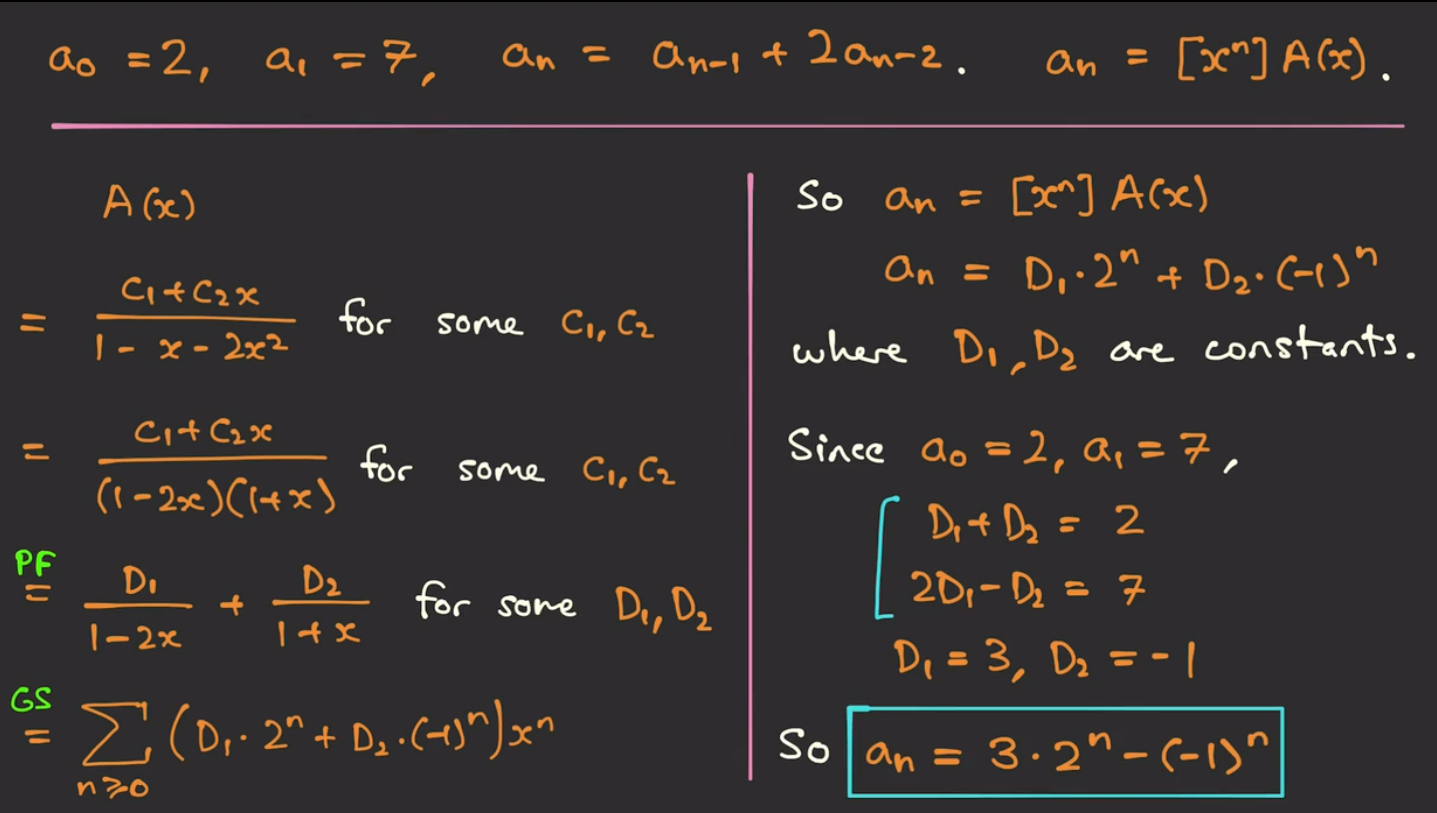 a₀ = 2, a₁ = 7, aₙ = aₙ₋₁ + 2aₙ₋₂. aₙ = [xⁿ] A(x).
A(x)
= (C₁ + C₂x)/(1 - x - 2x²) for some C₁, C₂
= (C₁ + C₂x)/((1 - 2x)(1 + x)) for some C₁, C₂
PF
= D₁/(1 - 2x) + D₂/(1 + x) for some D₁, D₂
GS
= ∑ (D₁ · 2ⁿ + D₂ · (-1)ⁿ) xⁿ
n ⩾ 0
So aₙ = [xⁿ] A(x)
aₙ = D₁ · 2ⁿ + D₂ · (-1)ⁿ
where D₁, D₂ are constants.
Since a₀ = 2, a₁ = 7,
D₁ + D₂ = 2
2D₁ - D₂ = 7
D₁ = 3, D₂ = -1
So aₙ = 3 · 2ⁿ - (-1)ⁿ